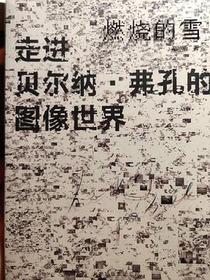 燃烧的雪
走进
贝尔纳·弗孔的
图像世界